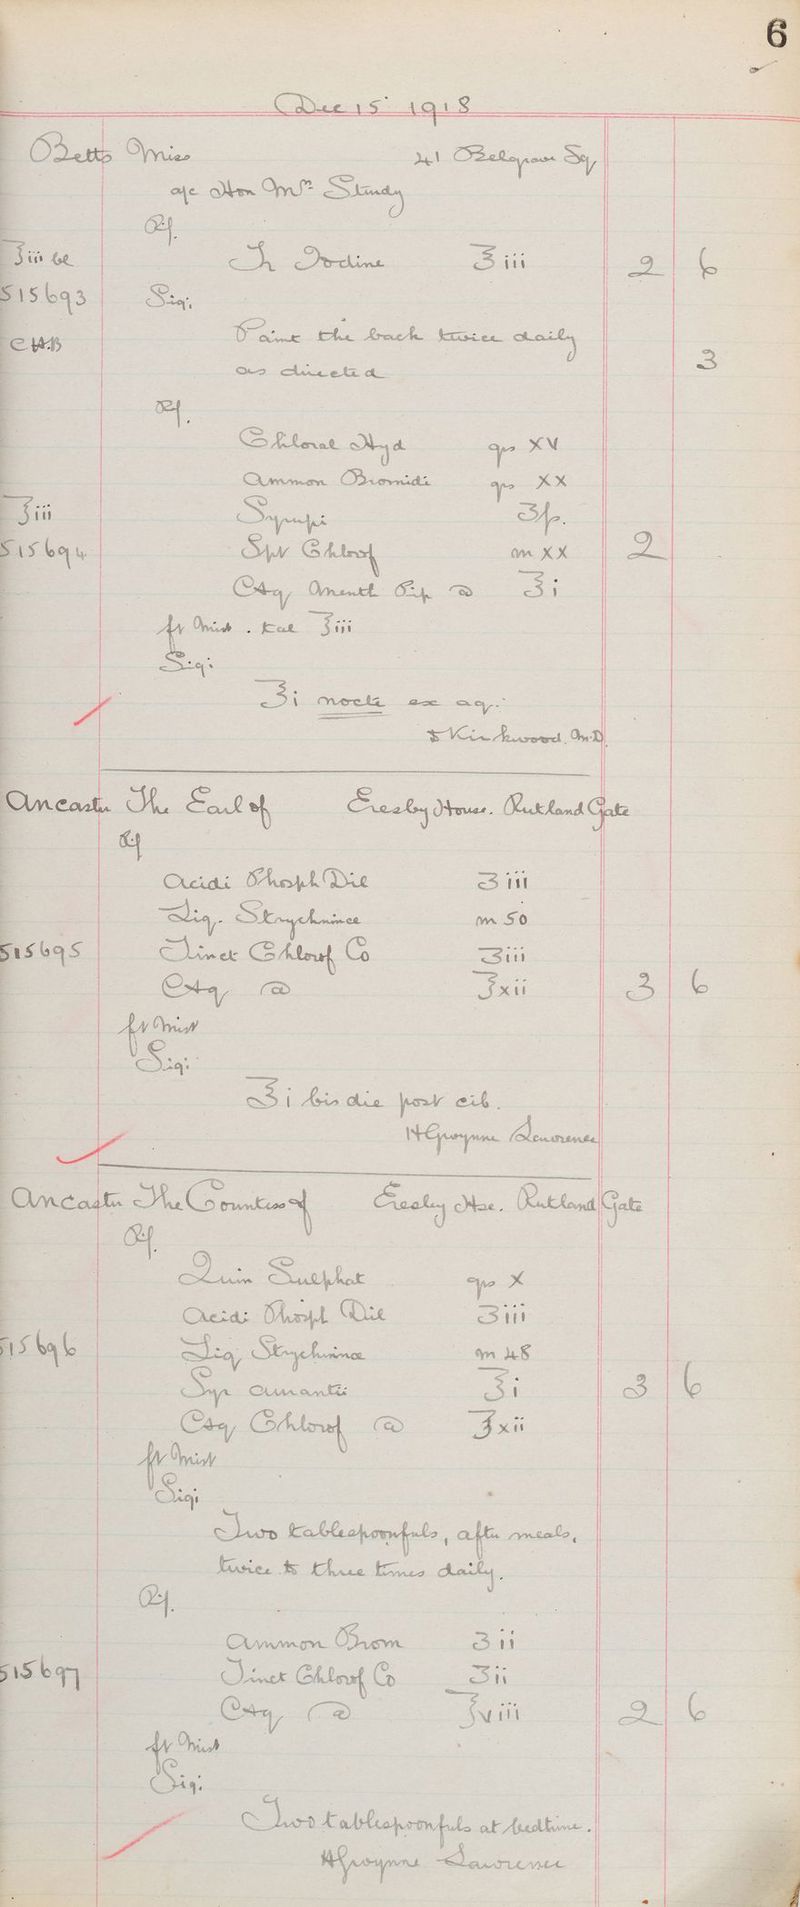 6
Dec 15 1918
Betts Miss 41 Belgrave Sq
a/c Hon Mrs Sturdy
Rf.
℥iii bl Tr Iodine ℥iii 2 6
515693 Sig:
CH.B Paint the back twice daily
as directed 3
Rf.
Chloral Hyd grs XV
Ammon Bromidi grs XX
℥iii Syrupi ʒſs.
515694 Spt Chlorof m xx 2
Aq Menth Pip @ ℥i
ft Mist. tal ℥iii
Sig:
℥i nocte ex aq:
Kirkwood. M.D.
Ancaster The Earl of Eresby House. Rutland Gate
Rf
Acidi Phosph Dil ʒiii
Liq. Strychninae m 50
515695 Tinct Chlorof Co ʒiii
Aq @ ℥xii 3 6
ft Mist
Sig:
℥i bis die post cib.
H Gwynne Lawrence
Ancaster The Countess of Eresby Hse. Rutland Gate
Rf.
Quin Sulphat grs X
Acidi Phosph Dil ʒiii
515696 Liq Strychninae m 48
Syr Aurantii ℥i 3 6
Aq Chlorof @ ℥xii
ft Mist
Sig:
Two tablespoonfuls, after meals,
twice to three times daily.
Rf.
Ammon Brom ʒii
515697 Tinct Chlorof Co ʒii
Aq @ ℥viii 2 6
ft Mist
Sig:
Two tablespoonfuls at bedtime.
H Gwynne Lawrence